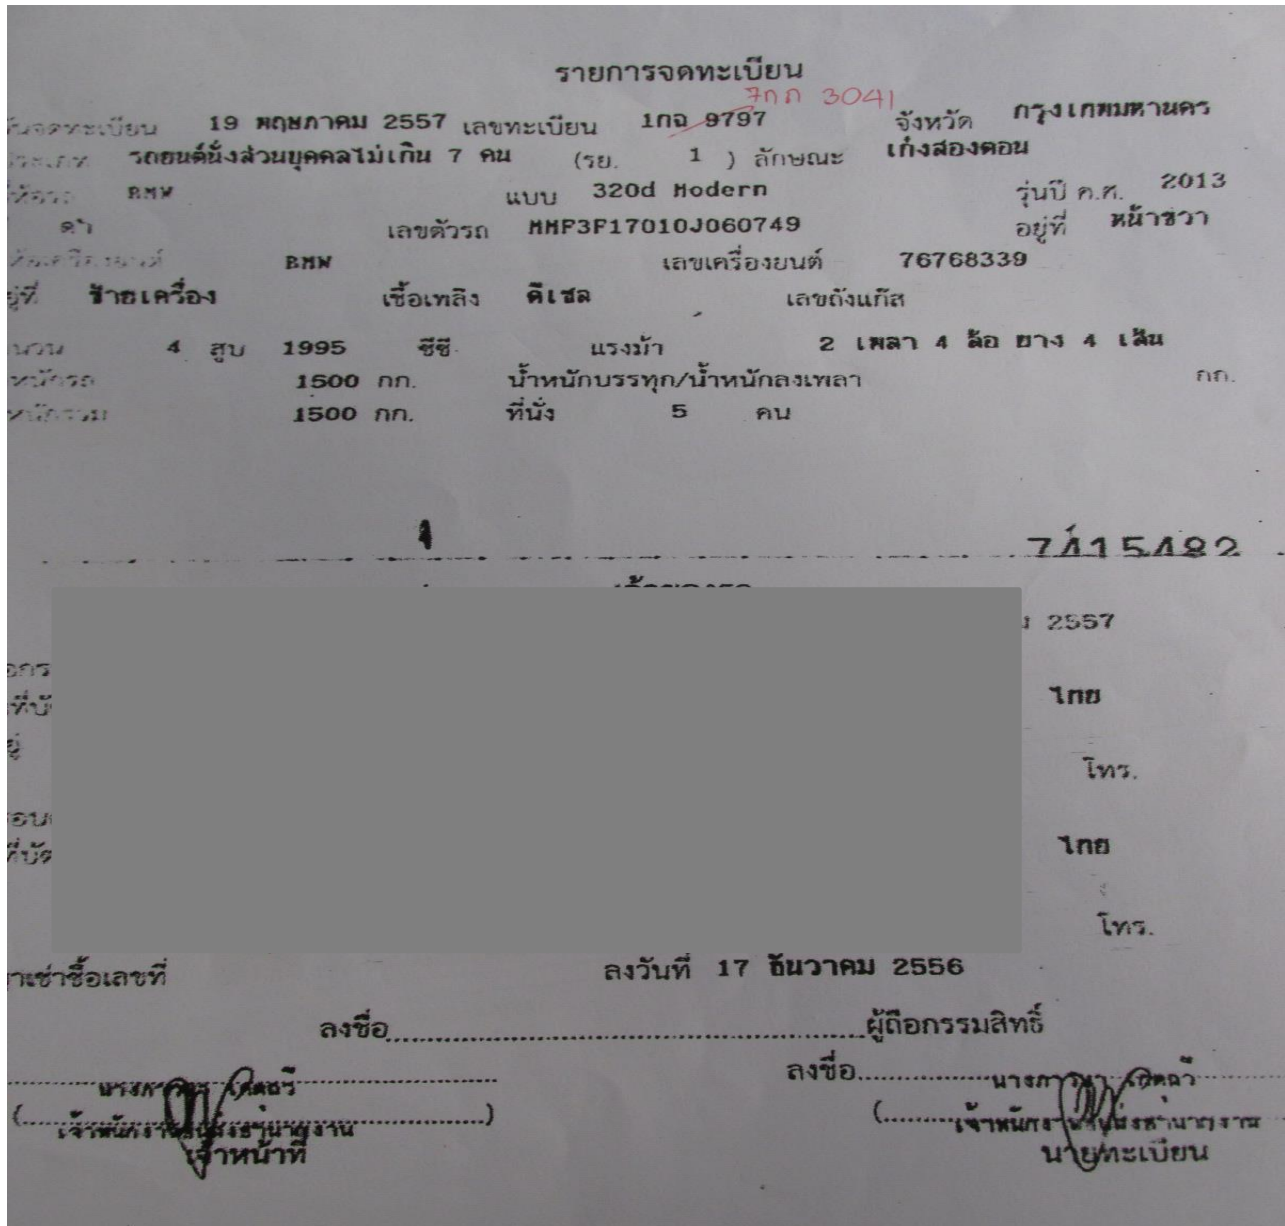 รายการจดทะเบียน
7กภ 3041
วันจดทะเบียน 19 พฤษภาคม 2557 เลขทะเบียน 1กฉ 9797 จังหวัด กรุงเทพมหานคร
ประเภท รถยนต์นั่งส่วนบุคคลไม่เกิน 7 คน (รย. 1 ) ลักษณะ เก๋งสองตอน
BMW แบบ 320d Modern รุ่นปี ค.ศ. 2013
ดำ เลขตัวรถ MMF3F17010J060749 อยู่ที่ หน้าขวา
BMW เลขเครื่องยนต์ 76768339
ยู่ที่ ซ้ายเครื่อง เชื้อเพลิง ดีเซล เลขถังแก๊ส
4 สูบ 1995 ซีซี. แรงม้า 2 เพลา 4 ล้อ ยาง 4 เส้น
1500 กก. น้ำหนักบรรทุก/น้ำหนักลงเพลา กก.
1500 กก. ที่นั่ง 5 คน
7415482
2557
ไทย
โทร.
ไทย
โทร.
าเช่าซื้อเลขที่ ลงวันที่ 17 ธันวาคม 2556
ลงชื่อ ผู้ถือกรรมสิทธิ์
ลงชื่อ
เจ้าหน้าที่ นายทะเบียน